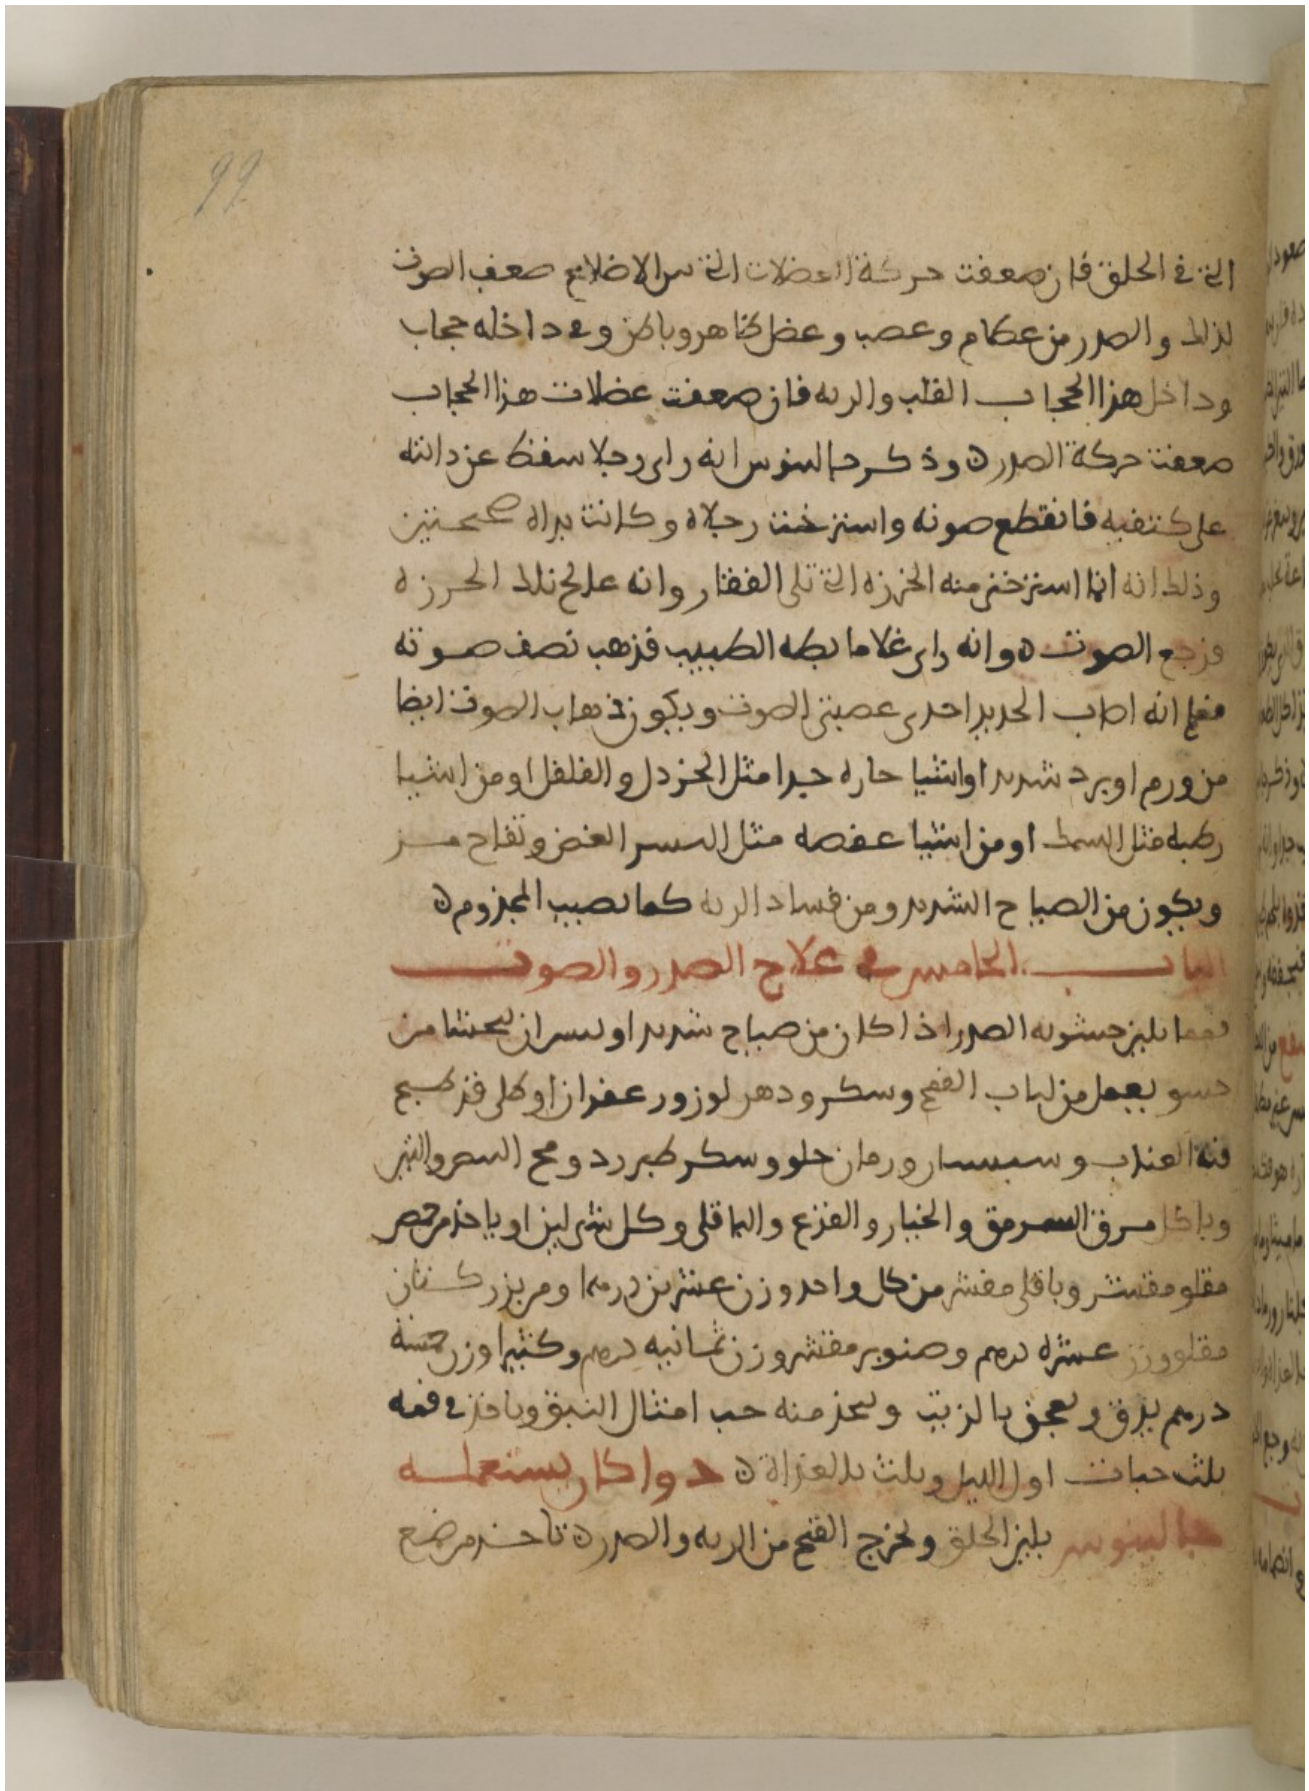 99
التي في الحلق فان ضعفت حركة العضلات التي بين الاضلاع ضعف الصوت
لذلك والصدر من عظام وعصب وعضل ظاهر وباطن وفي داخله حجاب
وداخل هذا الحجاب القلب والريه فان ضعفت عضلات هذا الحجاب
ضعفت حركة الصدر ه وذكر جالينوس انه راى رجلا سقط عن دابته
على كتفيه فانقطع صوته واسترخت رجلاه وكانت يداه صحيحتين
وذلك انه انما استرخت منه الخرزه التي تلى الفقار وانه عالج تلك الخرزه
فرجع الصوت ه وانه راى غلاما بطه الطبيب فذهب نصف صوته
فعلم انه اصاب الحديد احدى عصبتي الصوت ويكون ذهاب الصوت ايضا
من ورم او برد شديد او اشيا حاره جدا مثل الخردل والفلفل او من اشيا
رطبه مثل السمك او من اشيا عفصه مثل البسر الغض وتفاح مز
ويكون من الصياح الشديد ومن فساد الريه كما يصيب المجذوم ه
الباب الخامس في علاج الصدر والصوت
فمما يلين خشونه الصدر اذا كان من صياح شديد او يبس ان يتحشا من
حسو يعمل من لباب القمح وسكر ودهن لوز وزعفران او طلى قد طبخ
فيه العناب وسبستان ورمان حلو وسكر طبرزد ومح البيض والتين
وياكل مرق السرمق والخيار والقرع والباقلى وكل شي لين او ياخذ من حمص
مقلو مقشر وباقلى مقشر من كل واحد وزن عشرين درهما ومن بزر كتان
مقلو وزن عشره درهم وصنوبر مقشر وزن ثمانيه درهم وكثيرا وزن خمسة
درهم يدق ويعجن بالزيت ويتخذ منه حب امثال النبق وياخذ في فمه
ثلث حبات اول الليل وثلث بالغداة ه دوا كان يستعمله
جالينوس يلين الحلق ويخرج القيح من الريه والصدر ه تاخذ من صمغ